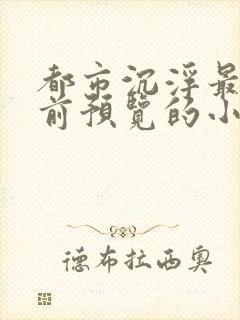 都市沉浮最
前预览的小
德布拉西奥